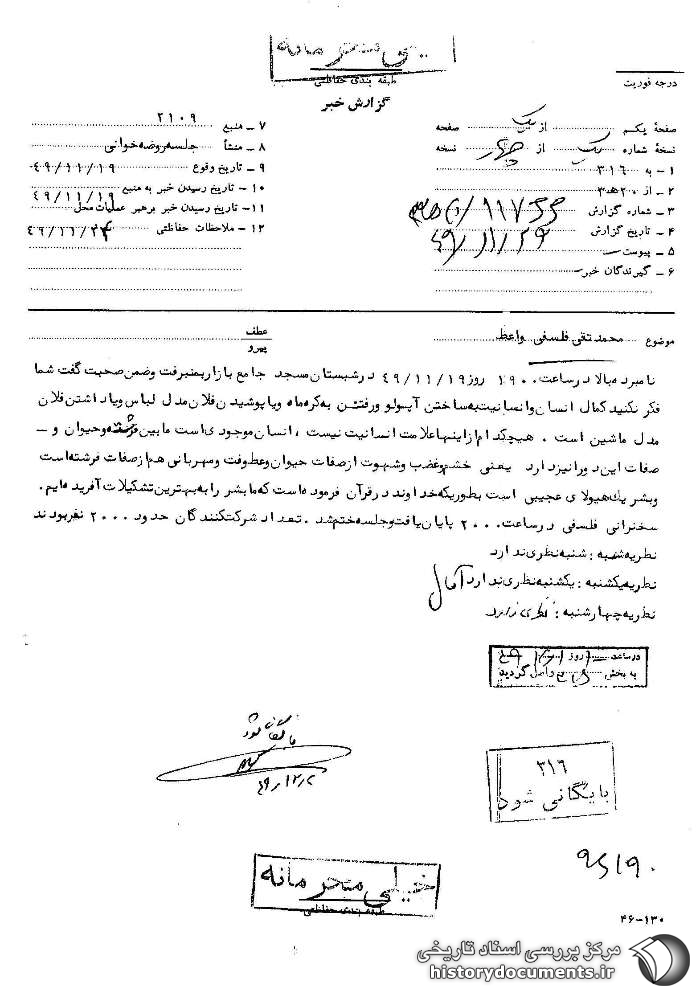 خیلی محرمانه
طبقه بندی حفاظتی
گزارش خبر
درجه فوریت
صفحهٔ یکم از یک صفحه
نسخهٔ شماره یک از چهار نسخه
۱ – به ۳۱۶
۲ – از ۲۰ ه ۳
۳ – شماره گزارش
۴ – تاریخ گزارش
۵ – پیوست
۶ – گیرندگان خبر
۷ – منبع ۲۱۰۹
۸ – منشأ جلسه روضه خوانی
۹ – تاریخ وقوع ۴۹/۱۱/۱۹
۱۰ – تاریخ رسیدن خبر به منبع ۴۹/۱۱/۱۹
۱۱ – تاریخ رسیدن خبر برهبر عملیات محل
۱۲ – ملاحظات حفاظتی ۴۹/۱۱/۲۴
موضوع محمد تقی فلسفی واعظ
عطف
پیرو
نامبرده بالا در ساعت ۱۹۰۰ روز ۴۹/۱۱/۱۹ در شبستان مسجد جامع بازار بمنبر رفت وضمن صحبت گفت شما
فکر نکنید کمال انسان وانسانیت به ساختن آپولو ورفتن به کره ماه ویا پوشیدن فلان مدل لباس ویا داشتن فلان
مدل ماشین است . هیچکدام از اینها علامت انسانیت نیست ، انسان موجودی است مابین فرشته و حیوان و –
صفات این دو را نیز دارد یعنی خشم وغضب وشهوت از صفات حیوان وعطوفت ومهربانی هم از صفات فرشته است
وبشر یک هیولای عجیبی است بطوریکه خداوند در قرآن فرموده است که ما بشر را به بهترین تشکیلات آفریده ایم .
سخنرانی فلسفی در ساعت ۲۰۰۰ پایان یافت وجلسه ختم شد . تعداد شرکت کنندگان حدود ۲۰۰۰ نفر بودند
نظریه شنبه : شنبه نظری ندارد
نظریه یکشنبه : یکشنبه نظری ندارد آمال
نظریه چهارشنبه : نظری ندارد
در ساعت روز
به بخش واصل گردید
بایگانی شود
۴۹/۱۲/۲
۳۱۶
بایگانی شود
خیلی محرمانه
طبقه بندی حفاظتی
۴۶-۱۳۰
مرکز بررسی اسناد تاریخی
historydocuments.ir